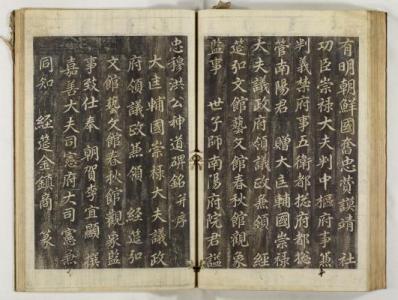 有明朝鮮國奮忠贊謨靖 社
功臣崇祿大夫判中樞府事兼
判義禁府事五衛都摠府都摠
管南陽君 贈大匡輔國崇祿
大夫議政府領議政兼領 經
筵弘文館藝文館春秋館觀象
監事 世子師南陽府院君謚
忠穆洪公神道碑銘并序
大匡輔國崇祿大夫議政
府領議政兼領 經筵弘
文館藝文館春秋館觀象監
事致仕奉 朝賀李宜顯 撰
嘉善大夫司憲府大司憲兼
同知 經筵金鎮商 篆